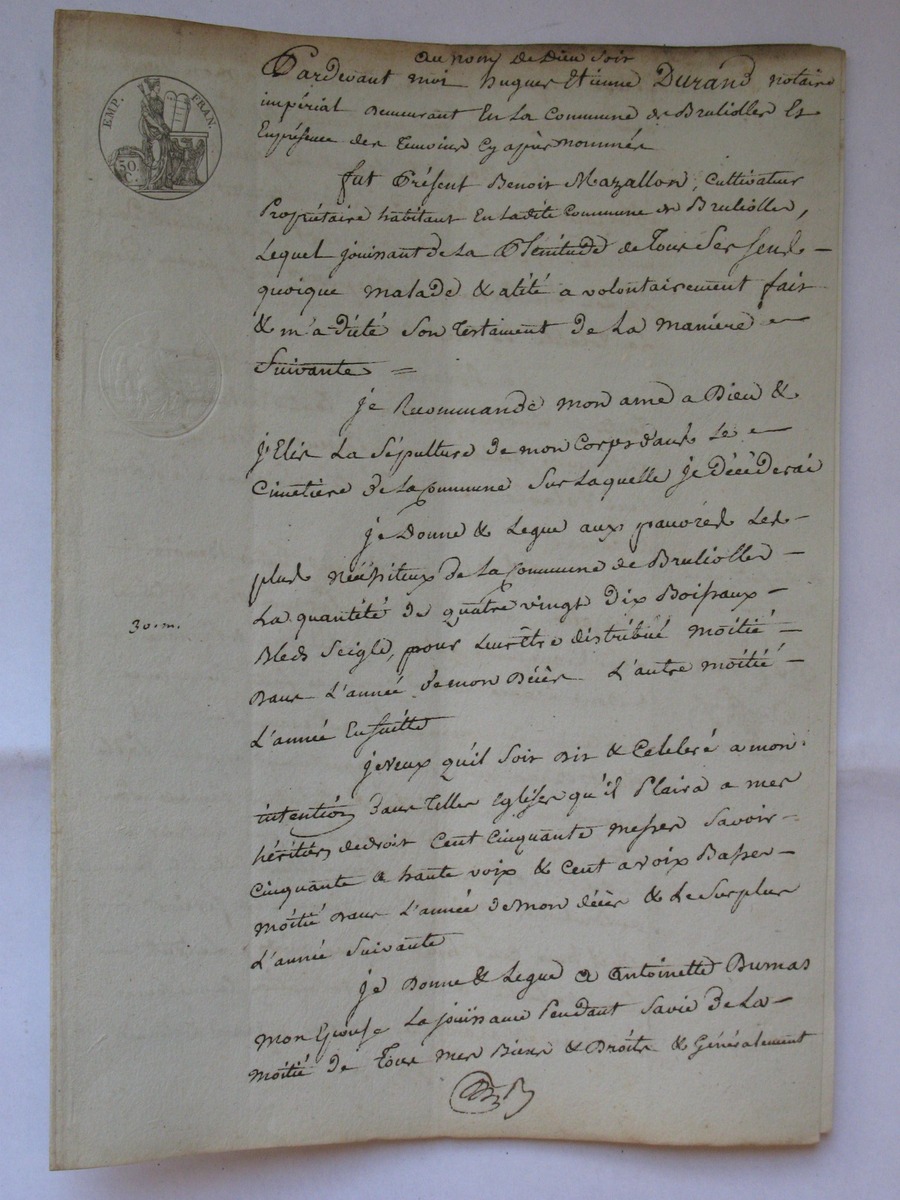 EMP. FRAN.
50 C.
au nom de Dieu soit
Pardevant moi hugues Etienne Durand notaire
impérial demeurant En La Commune de Brulliolles Et
Enprésence des temoins Cy après nommés
fut Présent Benoit Mazallon, Cultivateur
Propriétaire habitant En Ladite Commune de Brulliolles,
Lequel jouissant de La Plénitude de Tous Ses sens
quoique malade & alité a volontairement fait
& m'a dicté Son Testament de La maniere
Suivante =
je Recommande mon ame a Dieu &
j'Elis La Sépulture de mon Corps dans Le
Cimetiere de La Commune Sur Laquelle je Décéderai
je Donne & Legue aux pauvres Les
plus nécessiteux de La Commune de Brulliolles
La quantité de quatre vingt dix Boissaux
Bled Seigle, pour Leur être distribué moitié
dans L'année de mon Décès L'autre moitié
L'année Ensuitte
30. m.
je veux qu'il Soit dit & Celebré a mon
intention dans Telles Eglises qu'il Plaira a mes
héritiers de droit Cent Cinquante messes Savoir
Cinquante a haute voix & Cent a voix Basses
moitié dans L'année de mon décès & Le Surplus
L'année Suivante
je Donne & Legue a Antoinette Dumas
mon Epouse La jouissance Pendant Sa vie de La
moitié de Tous mes Biens & Droits & Généralement